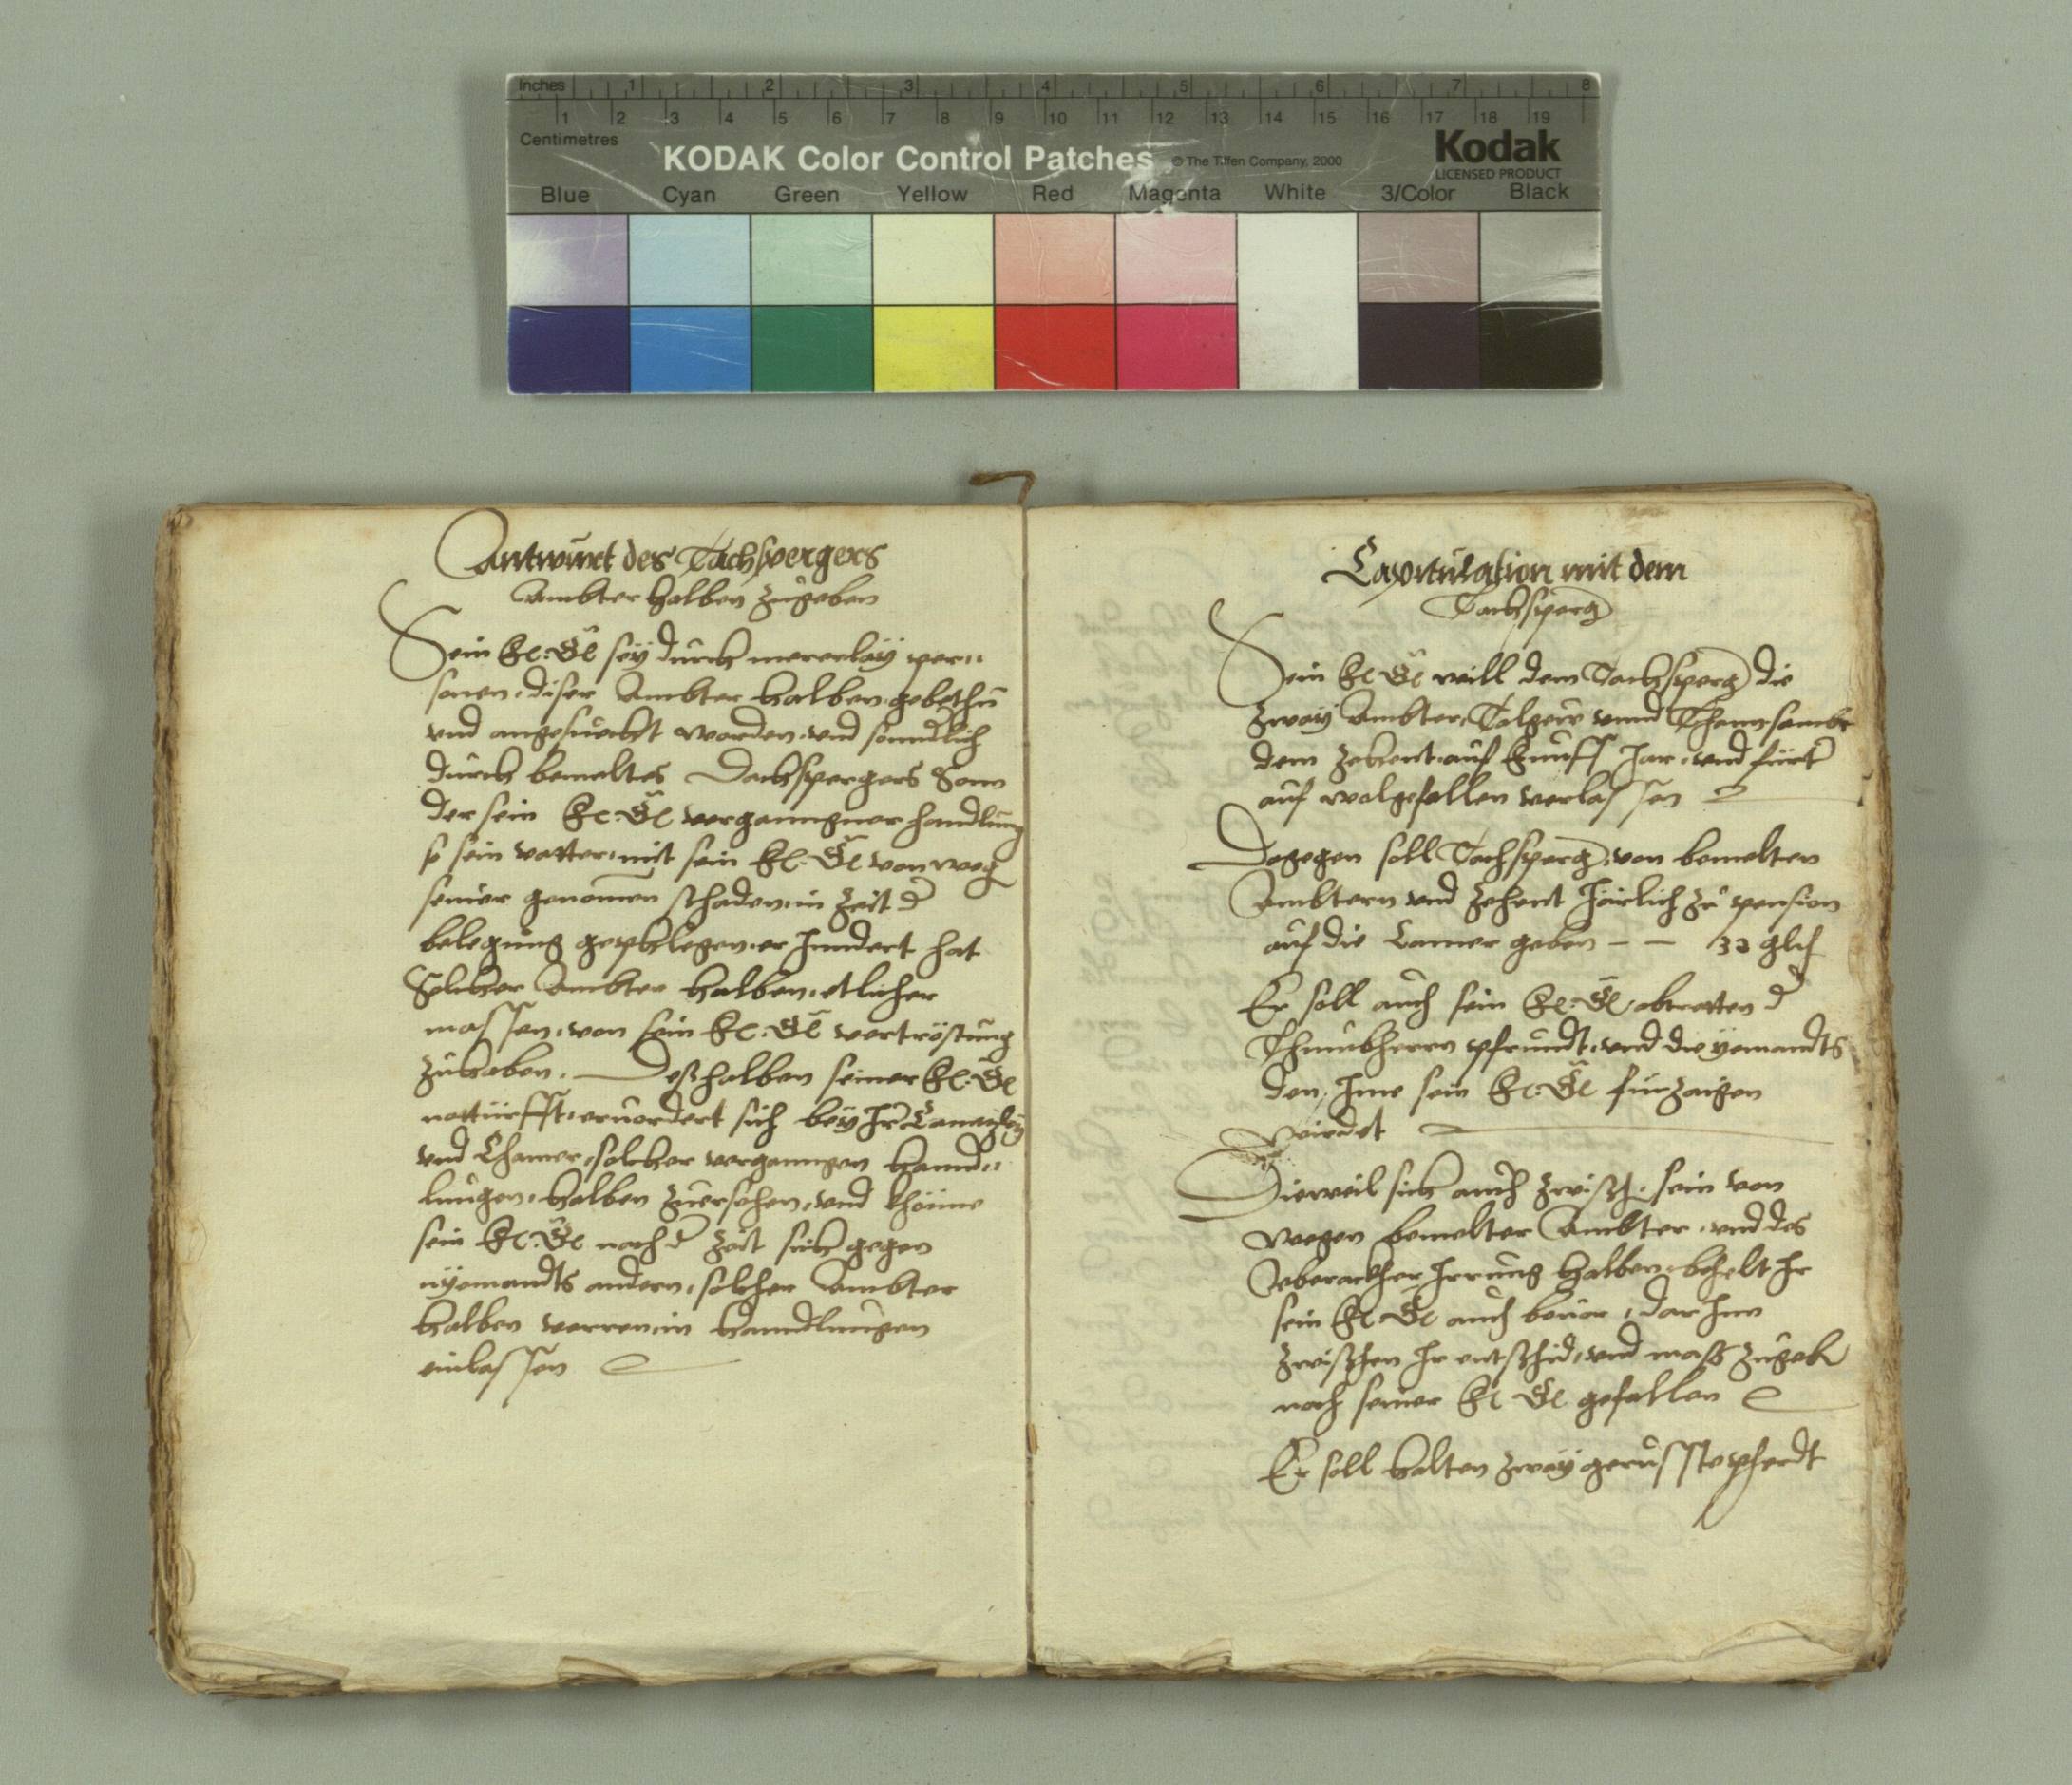 Inches 1 2 3 4 5 6 7 8
1 2 3 4 5 6 7 8 9 10 11 12 13 14 15 16 17 18 19
Centimetres
KODAK Color Control Patches © The Tiffen Company, 2000 Kodak
LICENSED PRODUCT
Blue Cyan Green Yellow Red Magenta White 3/Color Black
Antwurt des Tachspergers
Ambter halben zugeben
Sein sey durch mererlay per¬
sonen, diser Ambter halben
vnd angesuecht worden, vnd
durch bemeltes Dachspergers Son
der sein verganngner handlung
so sein vatter, mit sein von weg
seiner genomen schaden, in Zeit d
belegung gepflegen, er hat
Solcher Ambter halben, etlicher
massen, von sein vertröstung
zuhaben. Deßhalben seiner
notturfft, eruordert sich bey Ir Cannzley
vnd Chamer, solcher verganngen hannd¬
lungen, halben zuersehen, vnd khönne
sein nach d Zeit sich gegen
nyemandts andern, solcher Ambter
halben verrer, in hanndlungen
einlassen
Capitulation mit dem
Tachsperg
Sein will dem Tachsperg die
zway Ambter, vnnd sambt
dem zehent, auf Jar, vnd
auf wolgefallen verlassen
Dagegen soll Tachsperg, von bemelten
Ambtern vnd zehent Järlich zu pension
auf die Camer geben – – 32
Er soll auch sein abtretten d
Thumbherrn pfrundt, vnd die yemandts
den, Ime sein fürzaigen
wirdet
Dieweil sich auch zwisch. sein von
wegen bemelter Ambter, vnd des
Irrung halben, behelt Ir
sein auch beuor, dar Inn
zwischen Ir entschid, vnd mass zugeb
nach seiner gefallen
Er soll halten zway gerüsste pferdt